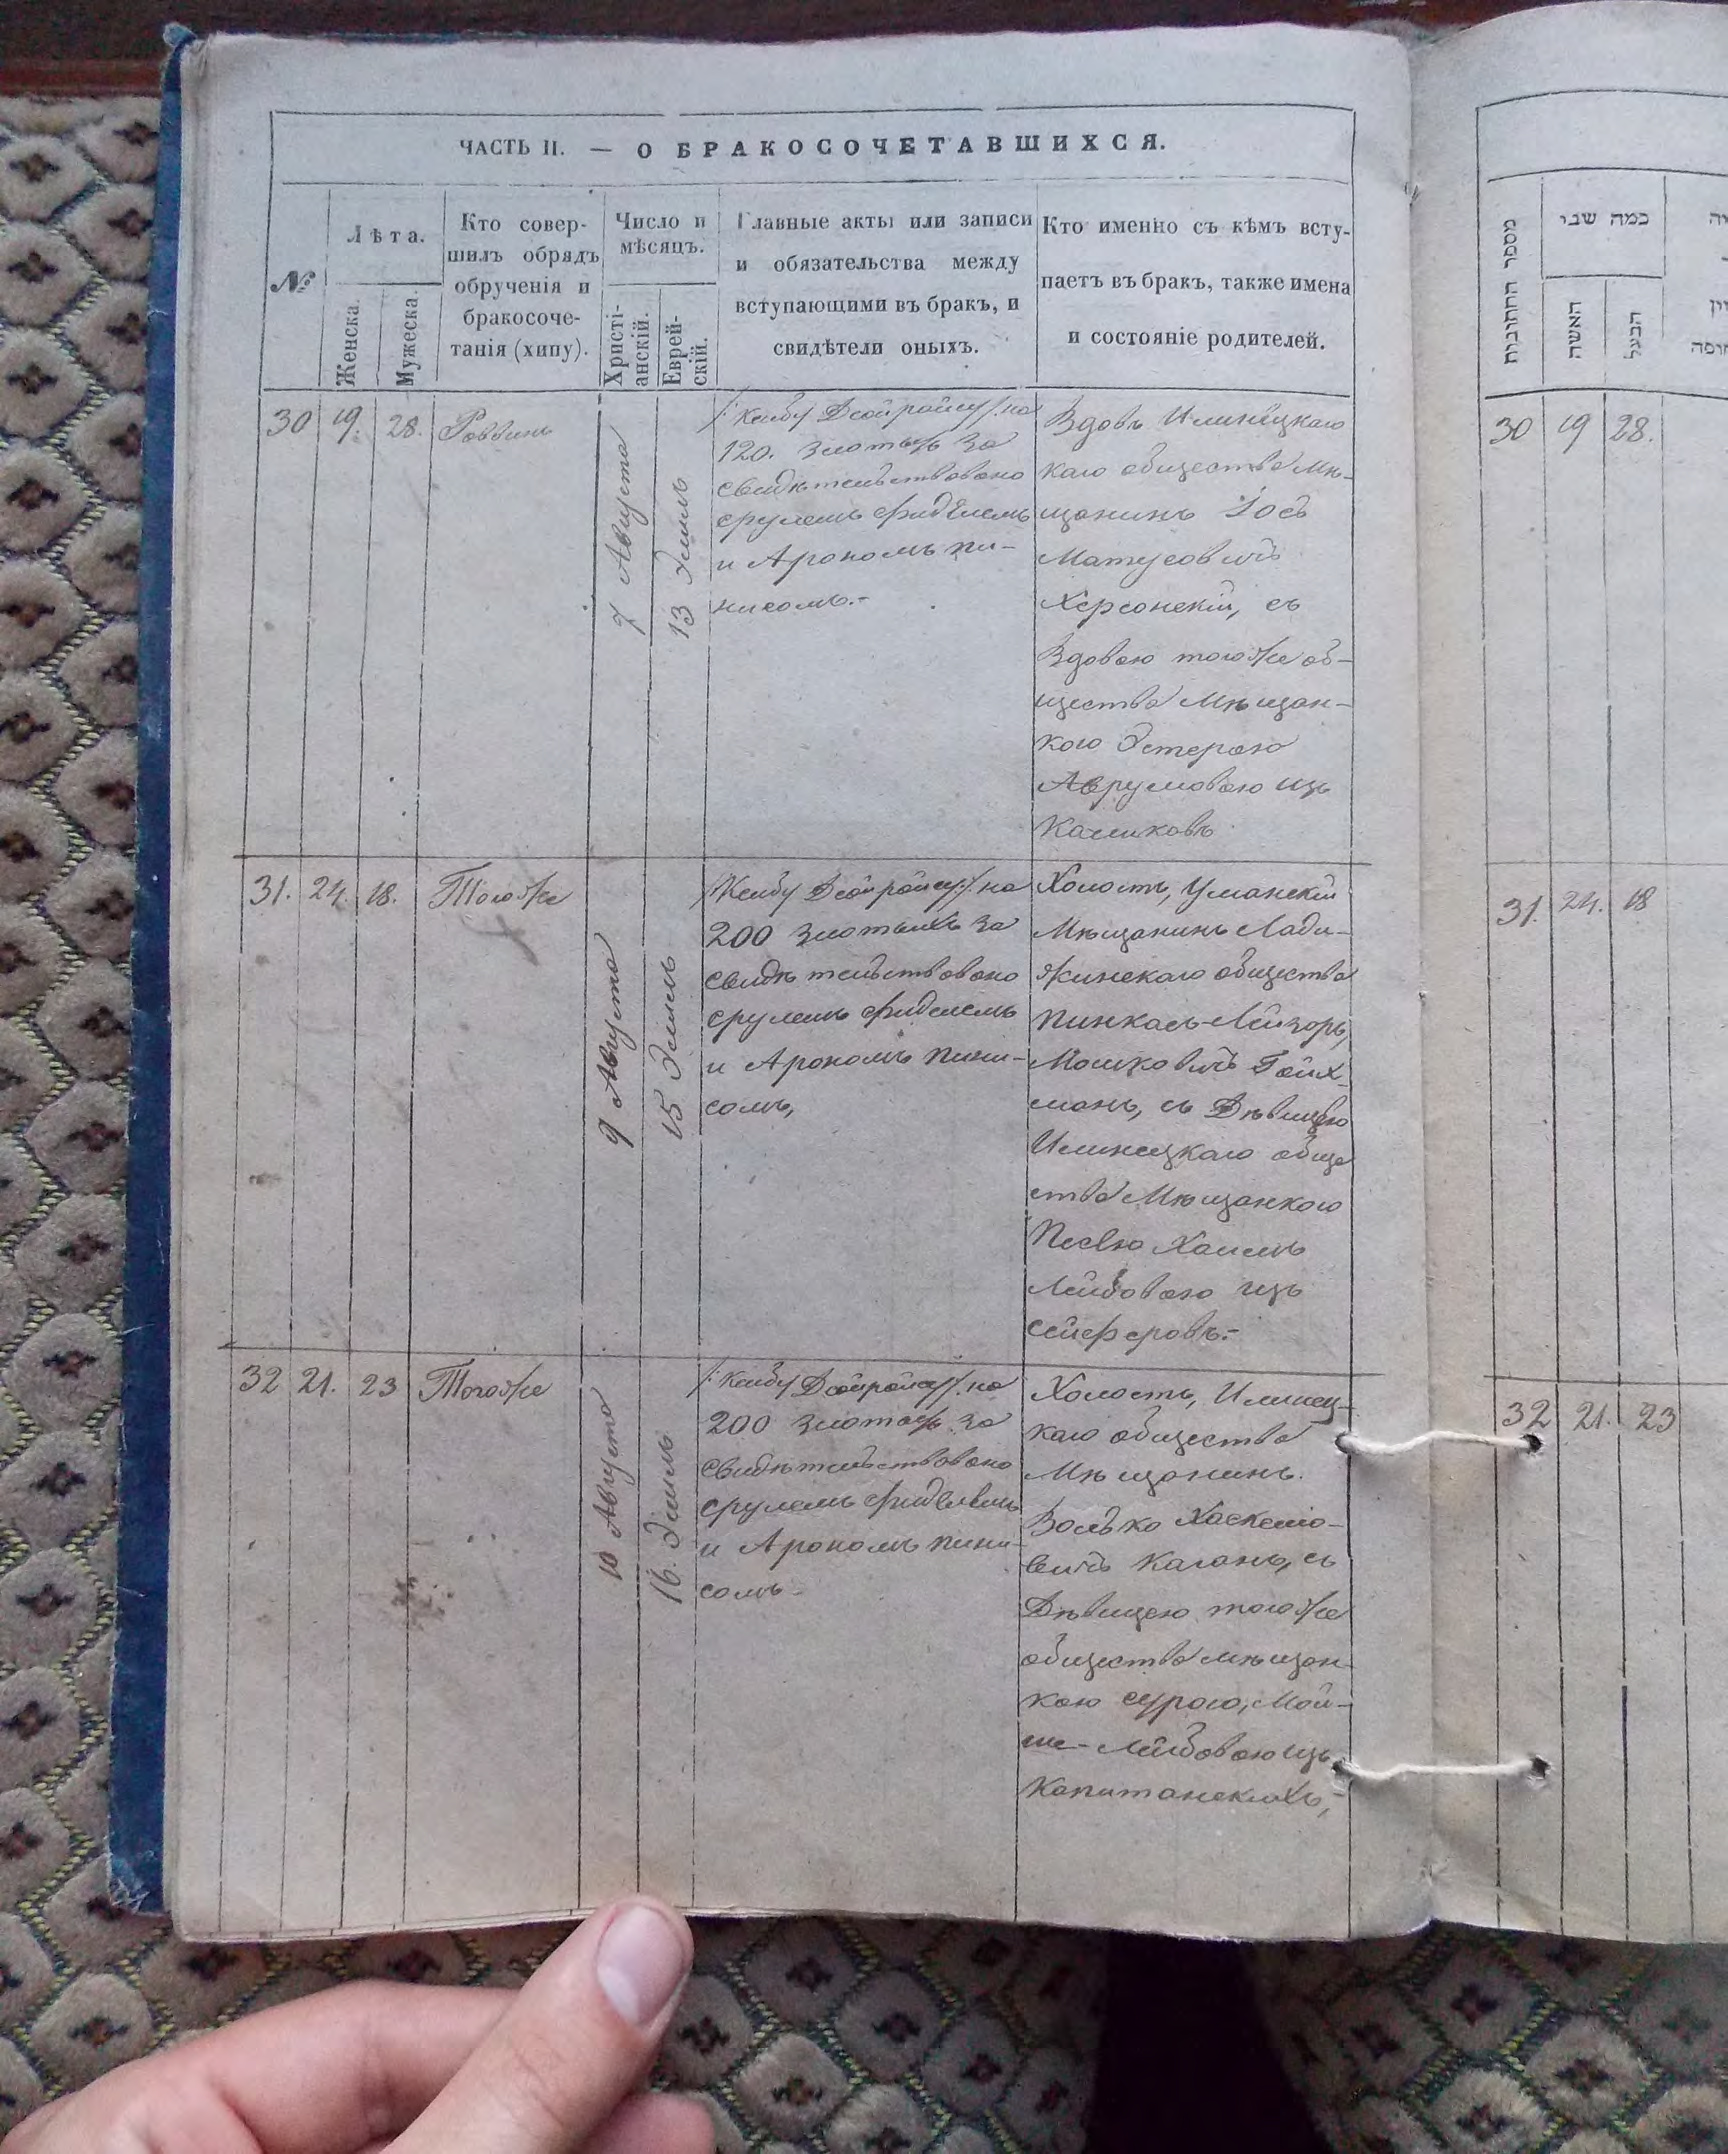 ЧАСТЬ II. — О БРАКОСОЧЕТАВШИХСЯ.
№
Лѣта.
Женска.
Мужеска.
Кто совер-
шилъ обрядъ
обрученія и
бракосоче-
танія (хипу).
Число и
мѣсяцъ.
Христі-
анскій.
Еврей-
скій.
Главные акты или записи
и обязательства между
вступающими въ бракъ, и
свидѣтели оныхъ.
Кто именно съ кѣмъ всту-
паетъ въ бракъ, также имена
и состояніе родителей.
30
19.
28.
Роввинъ
7 Августа
13 Элиль
на
120. злотыхъ за
свидѣтельствовано
срулемъ фиделемъ
и Арономъ пи-
нисомъ.-
Вдовъ Илинецкаго
каго общества мѣ-
щанинъ Іось
Матусовичъ
Херсонскій, съ
Вдовою того же об-
щества мѣщан-
кою Эстерою
Аврумовою изъ
Каликовъ
31.
24.
18.
Тотоже
9 Августа
15 Элиль
на
200 злотыхъ за
свидѣтельствовано
срулемъ фиделемъ
и Арономъ пини-
сомъ,
Холостъ, Уманскій
Мѣщанинъ Лади-
жинскаго общества
Пинкась-Лейзоръ,
Мошковичъ Гойх-
манъ, съ Дѣвицею
Илинецкаго обще
ства Мѣщанкою
Песею Хаимъ
Лейбовою изъ
Сейферовъ.-
32
21.
23
Тотоже
10 Августа
16. Элиль
на
200 злотыхъ за
свидѣтельствовано
срулемъ фиделемъ
и Арономъ пини-
сомъ
Холостъ, Илинец-
каго общества
Мѣщанинъ.
Волько Хаскеліо-
вичъ Каганъ, съ
Дѣвицею того же
общества мѣщан-
кою сурою, Мой-
ше-Лейбовою изъ
Капитанскихъ,-
מספר החתובות
כמה שני
האשה
הבעל
30
19
28.
31.
24.
18
32
21.
23